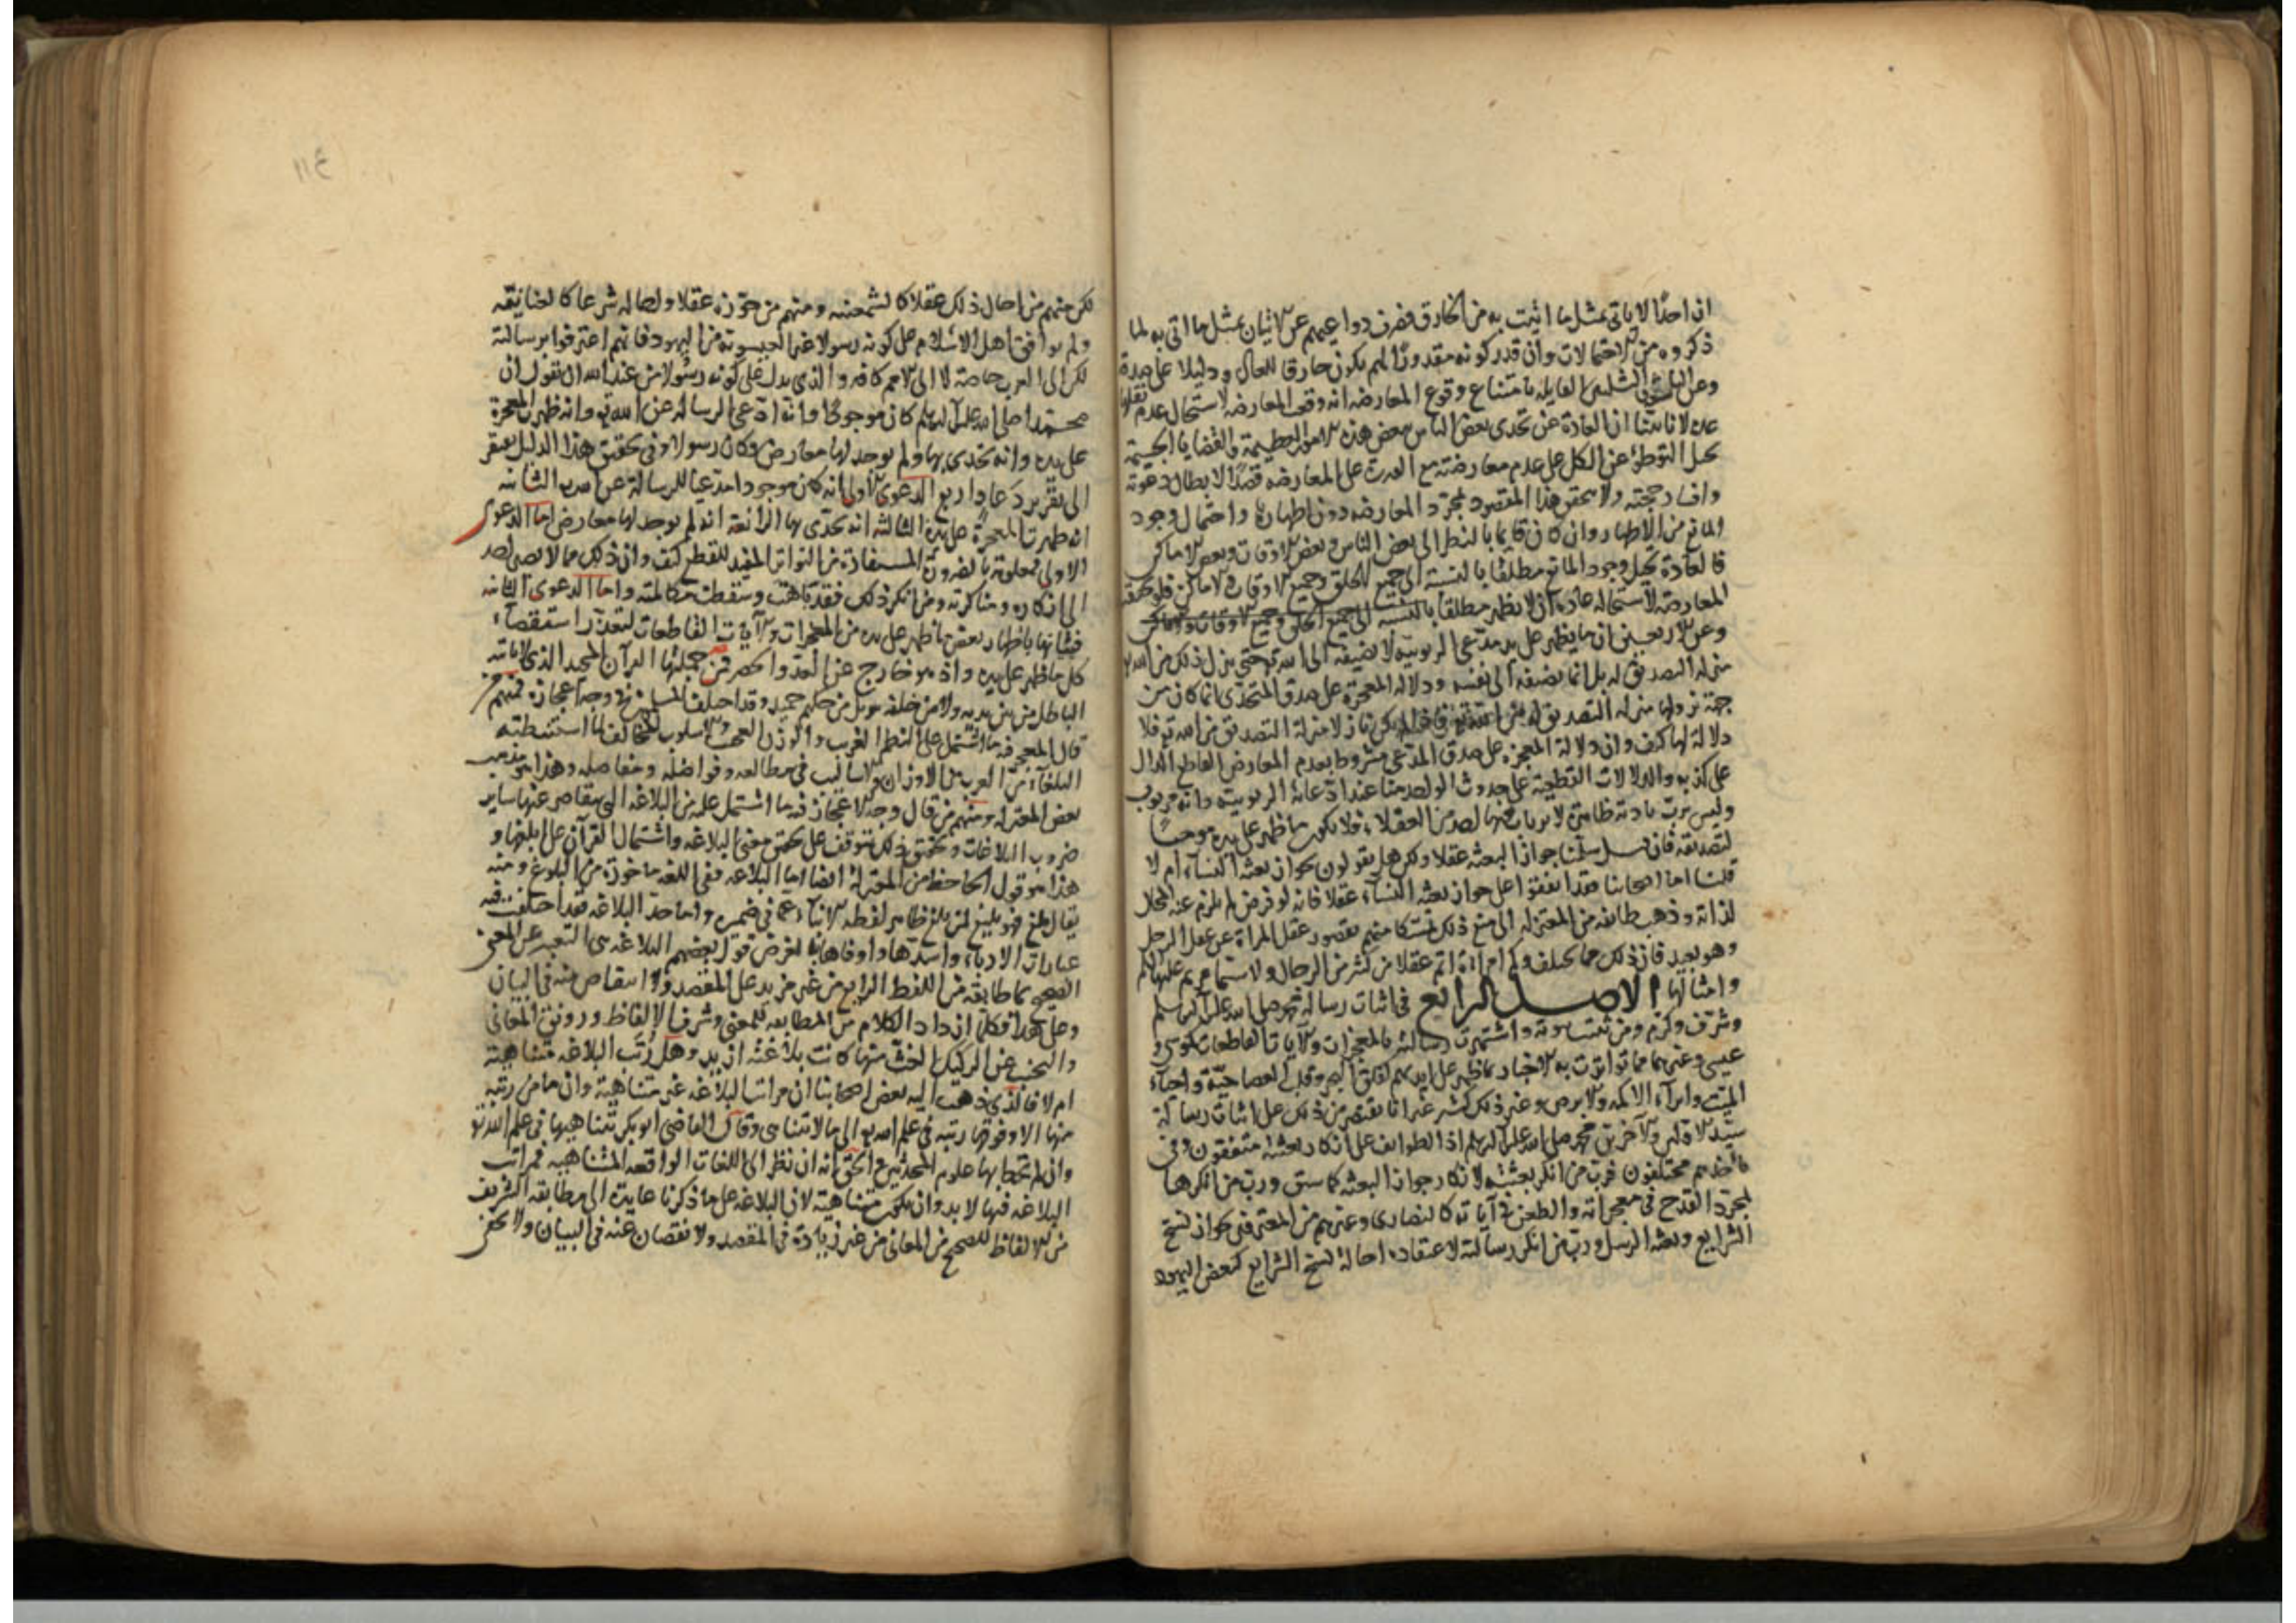 ان احدًا لا ياتى بمثل ما اتيت به من الخارق فصرف دواعيهم عن الاتيان بمثل ما اتى به لما
ذكروه من الاحتمالات وان قدر كونه مقدورًا لهم يكون خارقا للعادة ودليلا على صدقه
وعن الشبهة القايلة بامتناع وقوع المعارضة انه لو وقعت المعارضة لاستحال عدم نقلها
عادة لانا بينا ان العادة عن تحدى بعض الناس ببعض هذه الامور العظيمة والقضايا الجسيمة
تحيل التوطؤ عن الكل على عدم معارضته مع القدرة على المعارضة قصدًا لابطال دعوته
وافساد حجته ولا يتحقق هذا المقصود بمجرد المعارضة دون اظهارها واحتمال وجود
المانع من الاظهار وان كان قايما بالنظر الى بعض الناس وبعض الاوقات وبعض الاماكن
فالعادة تحيل وجود المانع مطلقا بالنسبة الى جميع الخلق وجميع الاوقات والاماكن فلو تحققت
المعارضة لاستحالة عادة ان لا يظهر مطلقا بالنسبة الى جميع الخلق وجميع الاوقات والاماكن
وعن الاربعين ان ما يظهر على يد مدعى الربوبية لا نضيفه الى الله تع حتى ينزل ذلك من الله تع
منزلة التصديق له بل انما يضيفه الى نفسه ودلالة المعجزة على صدق المتحدى انما كان من
جهة نزولها منزلة التصديق له من الله تع فاذا لم يكن نازلا منزلة التصديق من الله تع فلا
دلالة لها كيف وان دلالة المعجزة على صدق المدعى مشروط بعدم المعارض القاطع الدال
على كذبه والدلالات القطعية على حدوث الواحد منا عند ادعائه الربوبية وانه مربوب
وليس برب بادية ظاهرة لا يرتاب فيها احد من العقلاء فلا يكون ما ظهر على يده موجبا
لتصديقه فان قيل سلمنا جواز البعثة عقلا ولكن هل يقولون بجواز بعثة النساء ام لا
قلنا اما اصحابنا فقد اتفقوا على جواز بعثة النساء عقلا فانه لو فرض لم يلزم عنه المحال
لذاته وذهب طائفة من المعتزلة الى منع ذلك تمسكا منهم بقصور عقل المراة عن عقل الرجل
وهو بعيد فان ذلك مما يختلف وكم امراة اتم عقلا من كثير من الرجال ولا سيما مريم عليها السلم
وامثالها الاصل الرابع فى اثبات رسالة محمد صلى الله عليه وآله وسلم
وشرف وكرم ومن ثبتت نبوته واشتهرت رسالته بالمعجزات والآيات القاطعات كموسى و
عيسى وغيرهما مما تواترت به الاخبار بما ظهر على ايديهم كفلق اليم وقلب العصا حية واحياء
الميت وابراء الاكمه والابرص وغير ذلك كثير غير انا نقتصر من ذلك على اثبات رسالة
سيد الاولين والآخرين محمد صلى الله عليه وآله وسلم اذ الطوايف على انكار بعثته متفقون وفى
مأخذهم مختلفون فرب من انكر بعثته لانكار جواز البعثة كما سبق ورب من انكرها
لمجرد القدح فى معجزاته والطعن فى آياته كالنصارى وغيرهم من المعترفين بجواز نسخ
الشرايع وبعثة الرسل ورب من انكر رسالته لاعتقاده احالة نسخ الشرايع كبعض اليهود
لكن منهم من احال ذلك عقلا كالشمعنية ومنهم من جوزه عقلا واحاله شرعا كالعنانية
ولم يوافق اهل الاسلام على كونه رسولا غير العيسوية من اليهود فانهم اعترفوا برسالته
لكن الى العرب خاصة لا الى الامم كافة والذى يدل على كونه رسولا من عند الله ان نقول ان
محمدا صلى الله عليه وآله وسلم كان موجودًا وانه ادعى الرسالة عن الله تع وانه ظهرت المعجزة
على يده وانه تحدى بها ولم يوجد لها معارض فكان رسولا وفى تحقيق هذا الدليل نفتقر
الى تقرير دعاوا ربع الدعوى الاولى انه كان موجودا مدعيا للرسالة عن الله تع الثانية
انه ظهرت المعجزة على يده الثالثة انه تحدى بها الرابعة انه لم يوجد لها معارض اما الدعوى
الاولى فمعلومة بالضرورة المستفادة من التواتر المفيد للقطع كيف وان ذلك مما لا يصير احد
الى انكاره ومناكرته ومن انكر ذلك فقد باهت وسقطت مكالمته واما الدعوى الثانية
فبيانها باظهار بعض ما ظهر على يده من المعجزات والآيات القاطعات لتعذر استقصاء
كل ما ظهر على يده واذ هو خارج عن العد والحصر فمن جملتها القرآن المجيد الذى لا ياتيه
الباطل من بين يديه ولا من خلفه تنزيل من حكيم حميد وقد اختلف المسلمين فى وجه اعجازه فمنهم من
قال المعجز فيه ما اشتمل على النظم الغريب والوزن العجيب والاسلوب المخالف لما استنبطته
البلغاء من العرب من الاوزان والاساليب فى مطالعه وفواصله ومفاصله وهذا هو مذهب
بعض المعتزلة ومنهم من قال وجه الاعجاز فيه ما اشتمل عليه من البلاغة التى يتقاصر عنها ساير
ضروب البلاغات وتحقيق ذلك يتوقف على تحقيق معنى البلاغة واشتمال القرآن على ابلغها و
هذا هو قول الجاحظ من المعتزلة ايضا اما البلاغة ففى اللغة ماخوذة من البلوغ ومنه
يقال بلغ فهو بليغ لمن بلغ ظاهر لفظه الانباء عما فى ضميره واما حد البلاغة فقد اختلفت فيه
عبارات الادباء واسدها واوفاها بالغرض قول بعضهم البلاغة هى التعبير عن المعنى
الصحيح بما طابقه من اللفظ الرايع من غير مزيد على المقصد ولا انتقاص منه فى البيان
وعلى هذا فكلما ازداد الكلام من المطابقة للمعنى وشرف الالفاظ ورونق المعانى
والتجنب عن الركيك الغث منها كانت بلاغته ازيد وهل رتب البلاغة متناهية
ام لا فالذى ذهب اليه بعض اصحابنا ان مراتب البلاغة غير متناهية وان ما من رتبة
منها الا وفوقها رتبة فى علم الله تع الى ما لا تتناهى وقال القاضى ابو بكر بتناهيها فى علم الله تع
وان لم تحط بها علوم المحدثين والحق انه ان نظر الى اللغات الواقعة المتناهية فمراتب
البلاغة فيها لا بد وان يكون متناهية لان البلاغة على ما ذكرنا عايدة الى مطابقة الشريف
من الالفاظ للصحيح من المعانى من غير زيادة فى المقصد ولا نقصان عنه فى البيان ولا يخفى